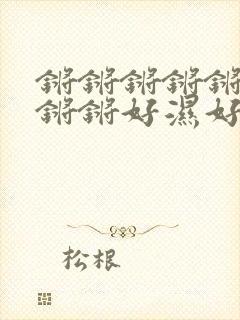 锵锵锵锵锵
锵锵好湿好
松根